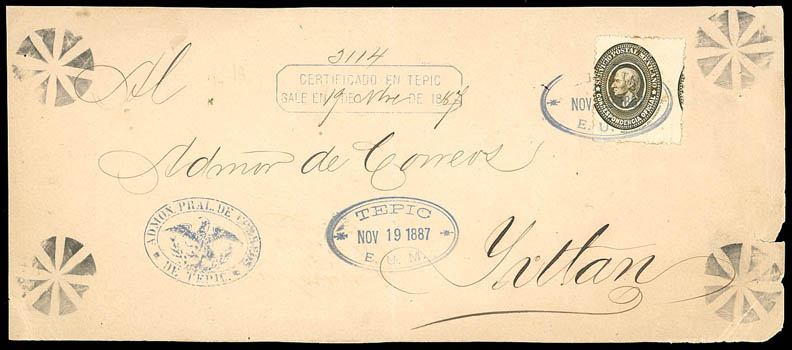 3114
CERTIFICADO EN TEPIC
SALE EN 19 DE Nbre DE 1887
SERVICIO POSTAL MEXICANO
CORRESPONDENCIA OFICIAL
NOV
E. U.
Al
Admor de Correos
ADMON. PRAL. DE CORREOS
DE TEPIC.
TEPIC
NOV 19 1887
E. U. M.